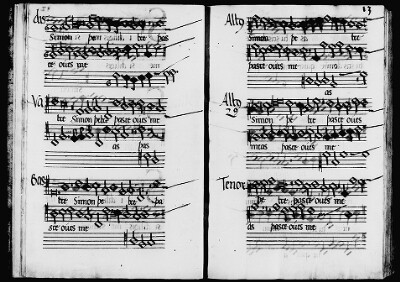 Simon
tre pas
te oues me
Va
tre Simon petre pasce oues me
as pas
Bas
tre Simon pe tre pa
sce oues me
13
Alto
Simon pe tre
pasce oues me
as
Alto
2º
Simon pe tre pasce oues
meas pasce oues me
Tenor
pe tre pasce oues me
as pasce oues me